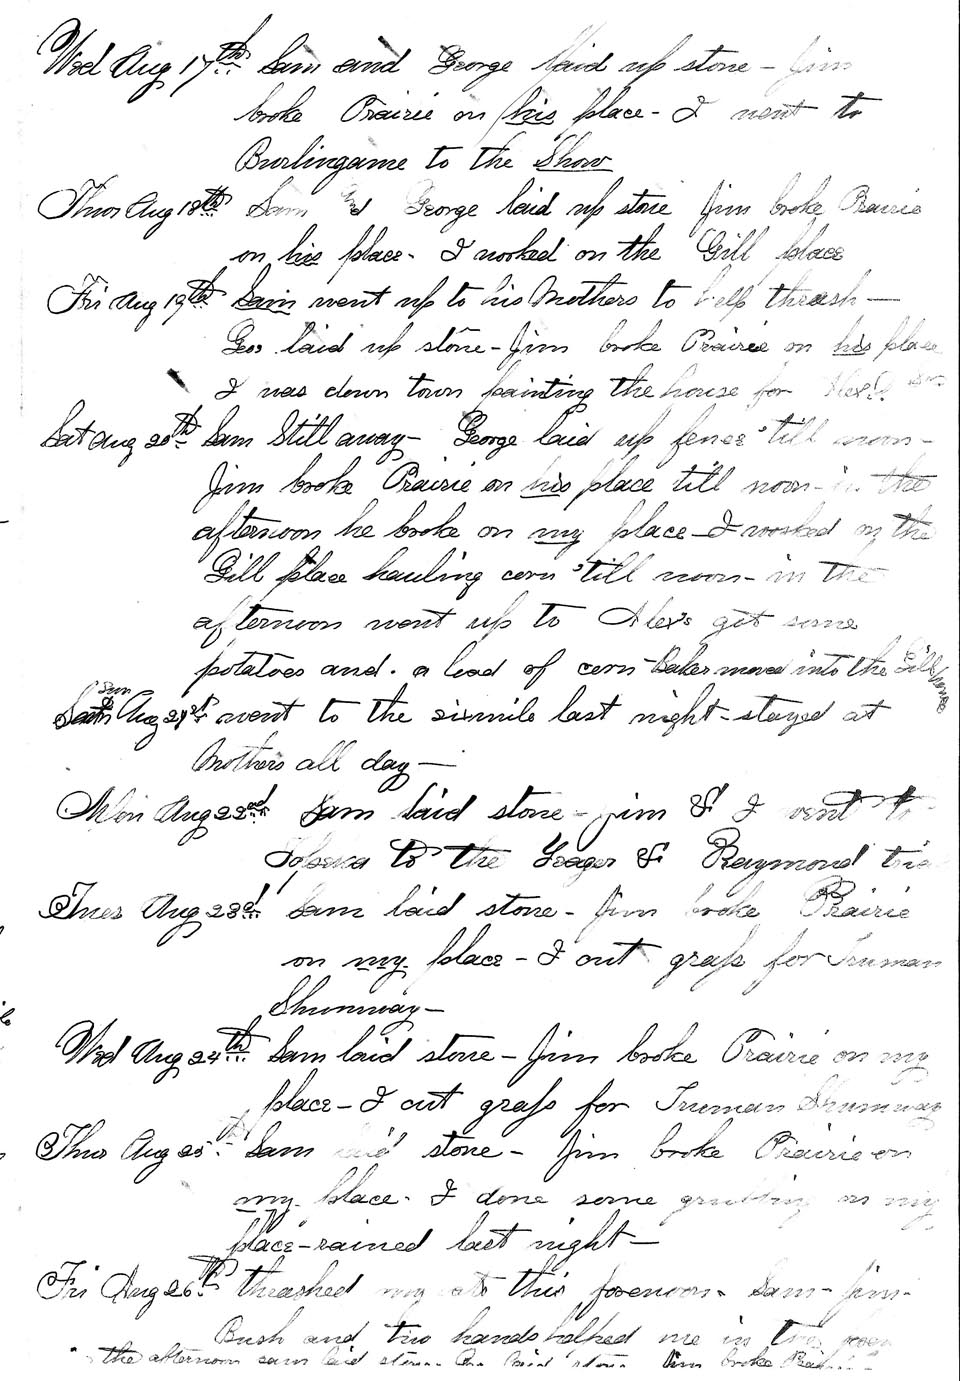 Wed Aug 17th Sam and George laid up stone - Jim
broke Prairie on his place - I went to
Burlingame to the Show
Thur Aug 18th Sam and George laid up stone Jim broke Prairie
on his place - I worked on the Gill place
Fri Aug 19th Sam went up to his Mothers to help thrash -
Geo laid up stone - Jim broke Prairie on his place
I was down town painting the house for
Sat Aug 20th Sam Still away - George laid up fence 'till noon -
Jim broke Prairie on his place till noon - in the
afternoon he broke on my place - I worked on the
Gill place hauling corn 'till noon - in the
afternoon went up to Alex's got some
potatoes and a load of corn Baker moved into the Gill house
Sun Aug 21st went to the sixmile last night - stayed at
Mothers all day -
Mon Aug 22nd Sam laid stone - Jim & I went to
Topeka to the & Raymond
Tues Aug 23d Sam laid stone - Jim broke Prairie
on my place - I cut grass for Truman
Shumway -
Wed Aug 24th Sam laid stone - Jim broke Prairie on my
place - I cut grass for Truman Shumway
Thur Aug 25th Sam laid stone - Jim broke Prairie on
my place - I done some grubbing on my
place - rained last night -
Fri Aug 26th thrashed my oats this forenoon - Sam - Jim -
Bush and two hands helped me in the
the afternoon Sam laid stone - Geo laid stone Jim broke